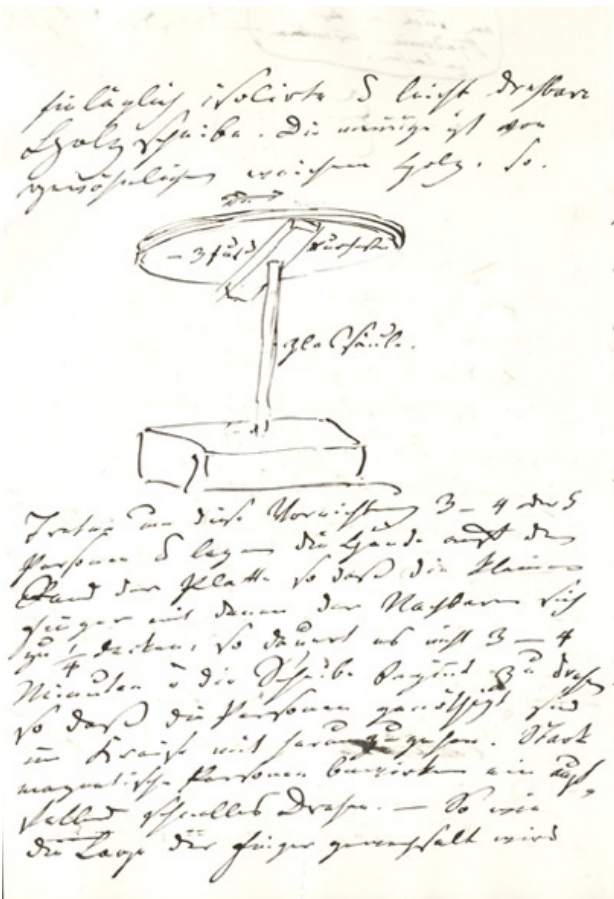 füglich isolirte & leicht drehbare
Holzscheibe. Die meinige ist von
gewöhnlichem weichem Holz. So.
– 3 Fuß Durchmesser
Glas Säule.
Treten an diese Vorrichtung 3 – 4 oder 5
Personen & legen die Hände auf den
Rand der Platte so daß die kleinen
Finger mit denen der Nachbarn sich
zu 1/4 decken, so dauert es nicht 3 – 4
Minuten & die Scheibe beginnt zu drehen
so daß die Personen genöthigt sind
im Kreise mit herumzugehen. Stark
magnetische Personen bewirken ein auf„
fallend schnelles Drehen. – So wie
die Lage der Finger gewechselt wird